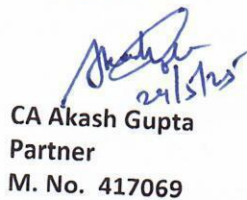 24/5/25
CA Akash Gupta
Partner
M. No. 417069